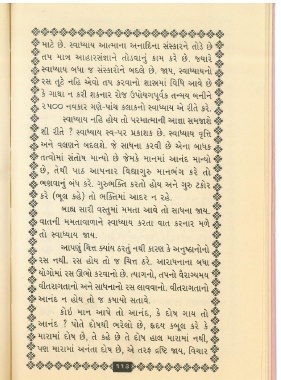 માટે છે. સ્વાધ્યાય આત્માના અનાદિના સંસ્કારને તોડે છે
તપ માત્ર આહારસંજ્ઞાને તોડવાનું કામ કરે છે. જ્યારે
સ્વાધ્યાય બધા જ સંસ્કારોને બદલે છે. જાપ, સ્વાધ્યાયનો
રસ તૂટે નહિ એવો તપ કરવાનો શાસ્ત્રમાં વિધિ આવે છે
કે ગાથા ન કરી શકનાર રોજ ઉપયોગપૂર્વક તન્મય બનીને
૨૫૦૦ નવકાર ગણે-પાંચ કલાકનો સ્વાધ્યાય એ રીતે કરે.
સ્વાધ્યાય નહિ હોય તો પરમાત્માની આજ્ઞા સમજાશે
શી રીતે ? સ્વાધ્યાય સ્વ-પર પ્રકાશક છે. સ્વાધ્યાય વૃત્તિ
અને વલણને બદલશે. જે સાધના કરવી છે એના બાધક
તત્વોમાં સંતોષ માન્યો છે જેમકે માનમાં આનંદ માન્યો
છે, તેથી પાઠ આપનાર વિદ્યાગુરુ માનભંગ કરે તો
ભણવાનું બંધ કરે. ગુરુભક્તિ કરતો હોય અને ગુરુ ટકોર
કરે (ભૂલ કહે) તો ભક્તિમાં આદર ન રહે.
બાહ્ય સારી વસ્તુમાં મમતા આવે તો સાધના જાય.
વાતની મમતાવાળાને સ્વાધ્યાય કરતા વાત કરનાર મળે
તો સ્વાધ્યાય જાય.
આપણું ચિત્ત ક્યાંય ઠરતું નથી કારણ કે અનુષ્ઠાનોનો
રસ નથી. રસ હોય તો જ ચિત્ત ઠરે. આરાધનાના બધા
યોગોમાં રસ ઊભો કરવાનો છે. ત્યાગનો, તપનો વૈરાગ્યમય
વીતરાગતાનો અને સાધનાનો રસ લાવવાનો. વીતરાગતાનો
આનંદ ન હોય તો જ કષાયો સતાવે.
કોઇ માન આપે તો આનંદ, કે દોષ ગાય તો
આનંદ ? પોતે દોષથી ભરેલો છે, હૃદય કબુલ કરે કે
મારામાં દોષ છે, તે કહે છે તે દોષ હાલ મારામાં નથી,
પણ મારામાં અનંતા દોષ છે, એ તરફ દ્રષ્ટિ જાય, વિચાર